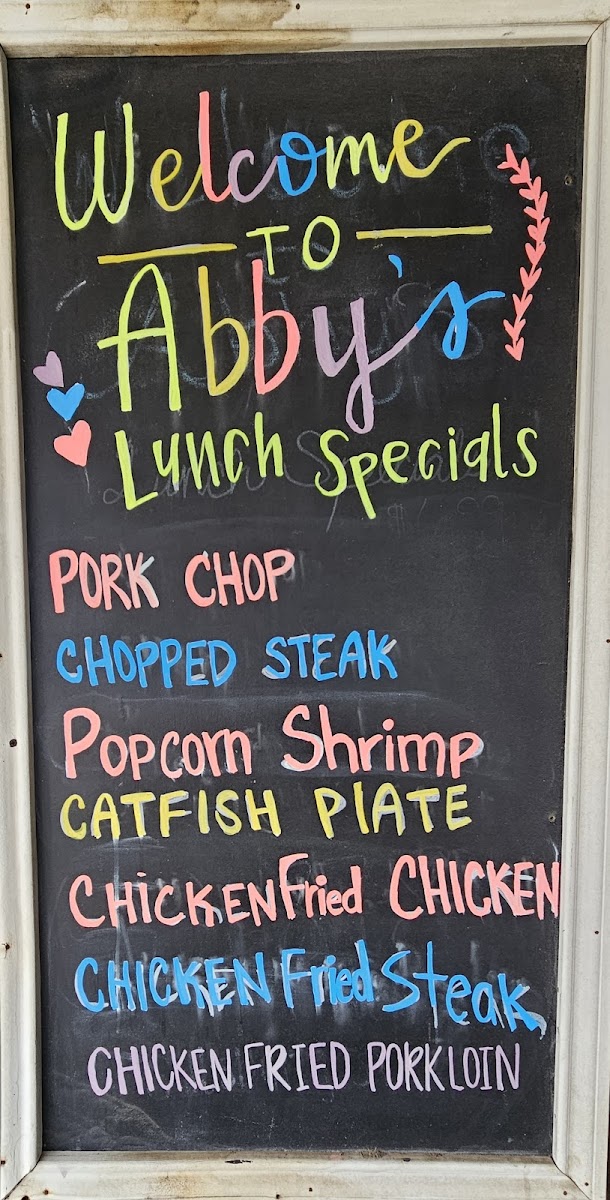 Welcome
TO
Abby's
Lunch Specials
PORK CHOP
CHOPPED STEAK
Popcorn Shrimp
CATFISH PlATE
CHiCKEN Fried CHICKEN
CHICKEN Fried Steak
CHICKEN FRIED PORK LOIN